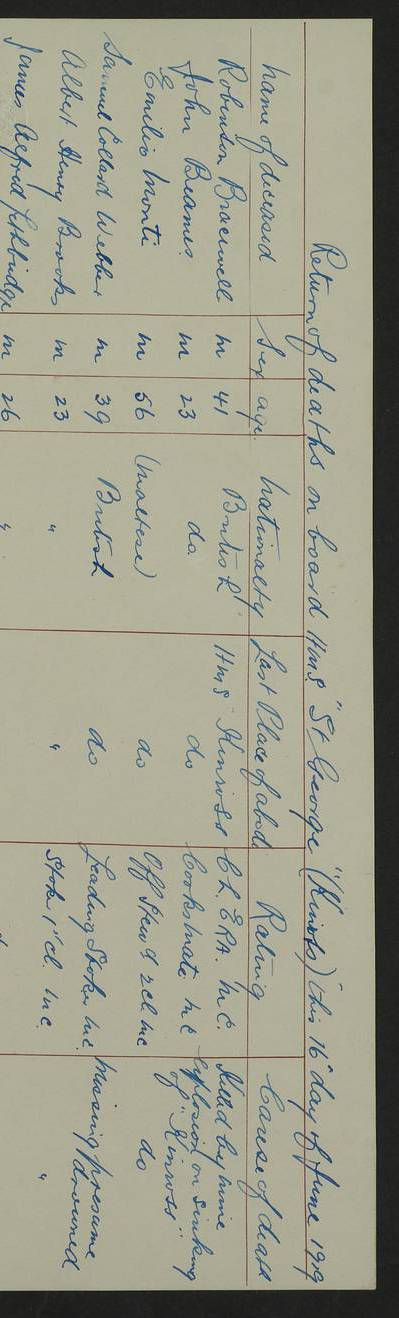 Return of deaths on board HMS "St George" (Kinross) this 16th day of June 1919
Name of deceased Sex age Nationality Last Place of abode Rating Cause of death
Robinson Bracewell m 41 British HMS Kinross Ch. ERA. N.C. Killed by mine
John Beames m 23 do do Cooks Mate N.C explosion on sinking
of "Kinross"
Emilio Monti m 56 (Maltese) do Off Stewd 2 cl N.C do
Samuel Collard Webber m 39 British do Leading Stoker N.C. Missing presume
drowned
Albert Henry Brooks m 23 " " Stoker 1st cl. N.C. "
James Alfred m 26 "